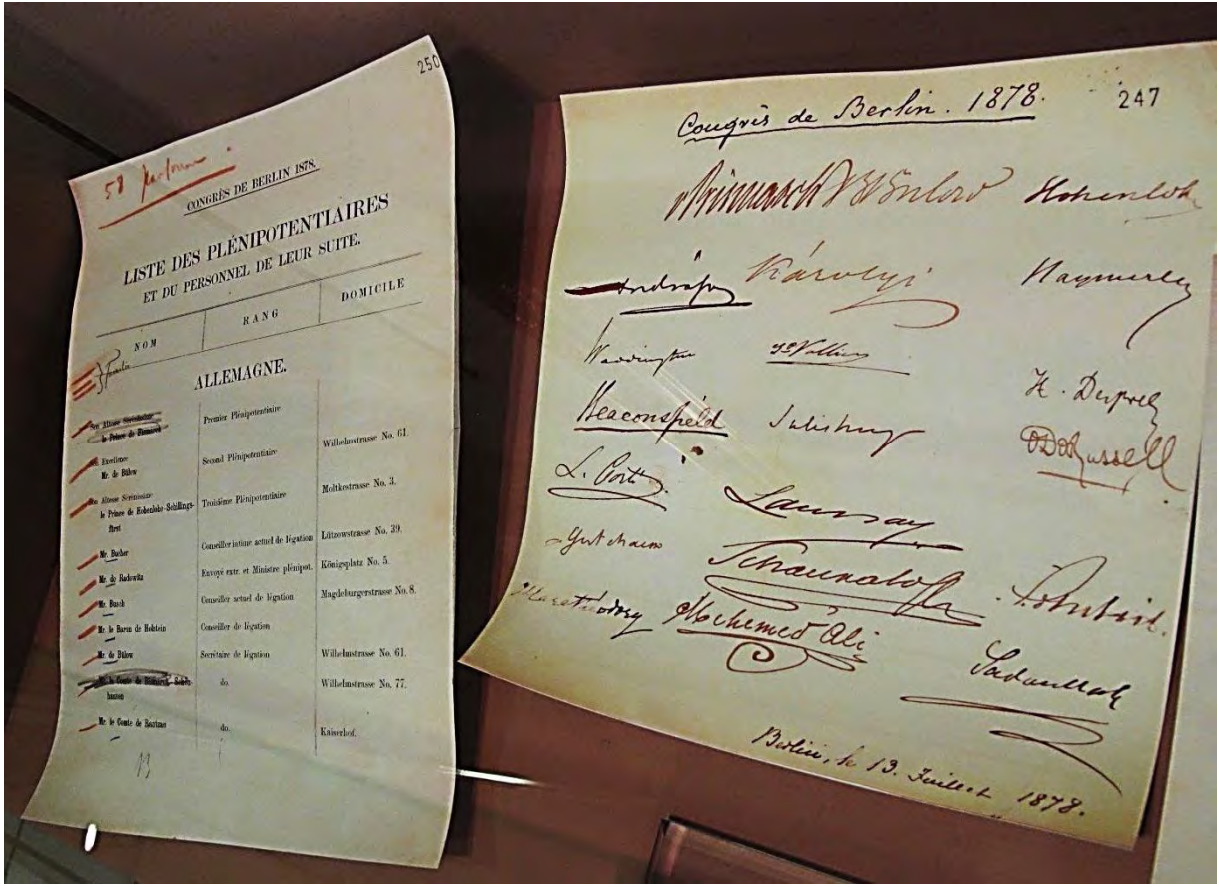 250
58
CONGRÈS DE BERLIN 1878.
LISTE DES PLÉNIPOTENTIAIRES
ET DU PERSONNEL DE LEUR SUITE.
NOM RANG DOMICILE
ALLEMAGNE.
Son Altesse Sérénissime Premier Plénipotentiaire
le Prince de Bismarck
Wilhelmstrasse No. 61.
Son Excellence Second Plénipotentiaire
Mr. de Bülow
Son Altesse Sérénissime Troisième Plénipotentiaire Moltkestrasse No. 3.
le Prince de Hohenlohe-Schillings-
fürst
Mr. Bucher Conseiller intime actuel de légation Lützowstrasse No. 39.
Mr. de Radowitz Envoyé extr. et Ministre plénipot. Königsplatz No. 5.
Mr. Busch Conseiller actuel de légation Magdeburgerstrasse No. 8.
Mr. le Baron de Holstein Conseiller de légation
Mr. de Bülow Secrétaire de légation Wilhelmstrasse No. 61.
Mr. le Comte de Bismarck-Schön- do. Wilhelmstrasse No. 77.
hausen
Mr. le Comte de Rantzau do. Kaiserhof.
247
Congrès de Berlin. 1878.
vBismarck BvBülow Hohenlohe
Andrássy Károlyi Haymerle
Waddington St Vallier
H. Desprez
Beaconsfield Salisbury
Odo Russell
L. Corti Launay
Gortchacow Schouvaloff P. d'Oubril.
Mehemed Ali
Sadoullah
Berlin, le 13. Juillet 1878.